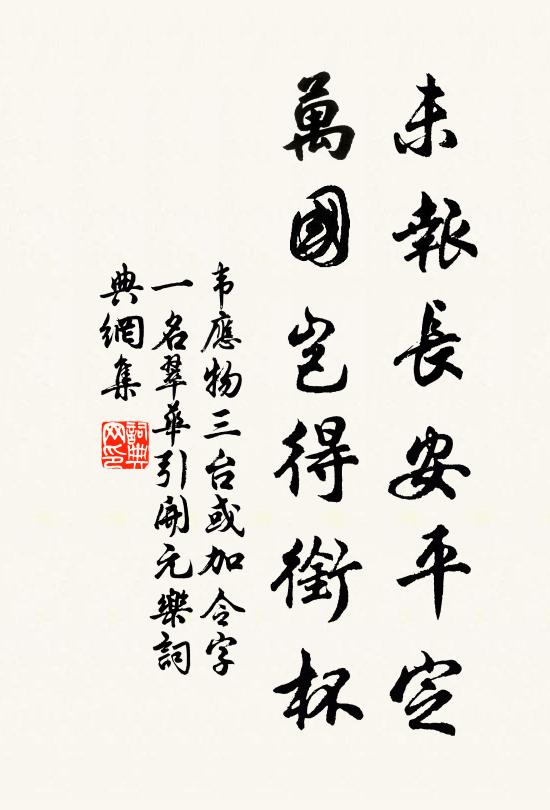 未報長安平定
萬國岂得銜杯
韦應物三台或加令字
一名翠華引開元樂詞
典網集
詞典
网印